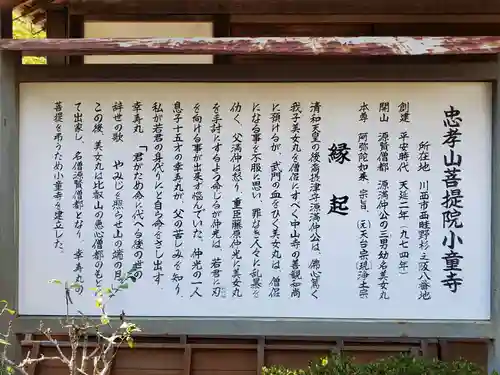 忠孝山菩提院小童寺
所在地　川西市西畦野杉之阪八番地
創建　平安時代　天延二年（九七四年）
開山　源賢僧都　源満仲公の三男幼名美女丸
本尊　阿弥陀如来　宗旨、（元天台宗）現浄土宗
縁起
清和天皇の後裔摂津守源満仲公は、佛心篤く
我子美女丸を僧侶にすべく中山寺の善観和尚
に預けるが、武門の血をひく美女丸は、僧侶
になる事を不服に思い、罪なき人々に乱暴を
働く、父満仲は怒り、重臣藤原仲光に美女丸
を手討にするよう命じるが仲光は、若君に刃
を向ける事が出来ず悩んでいた。仲光の一人
息子十五才の幸寿丸が、父の苦しみを知り、
私が若君の身代りにと自ら命をさし出す
幸寿丸　「君がため命に代へる後の世の
辞世の歌　やみじを照らせ山の端の月」
この後、美女丸は比叡山の恵心僧都のもと
で出家し、名僧源賢僧都となり、幸寿丸の
菩提を弔うため小童寺を建立した。